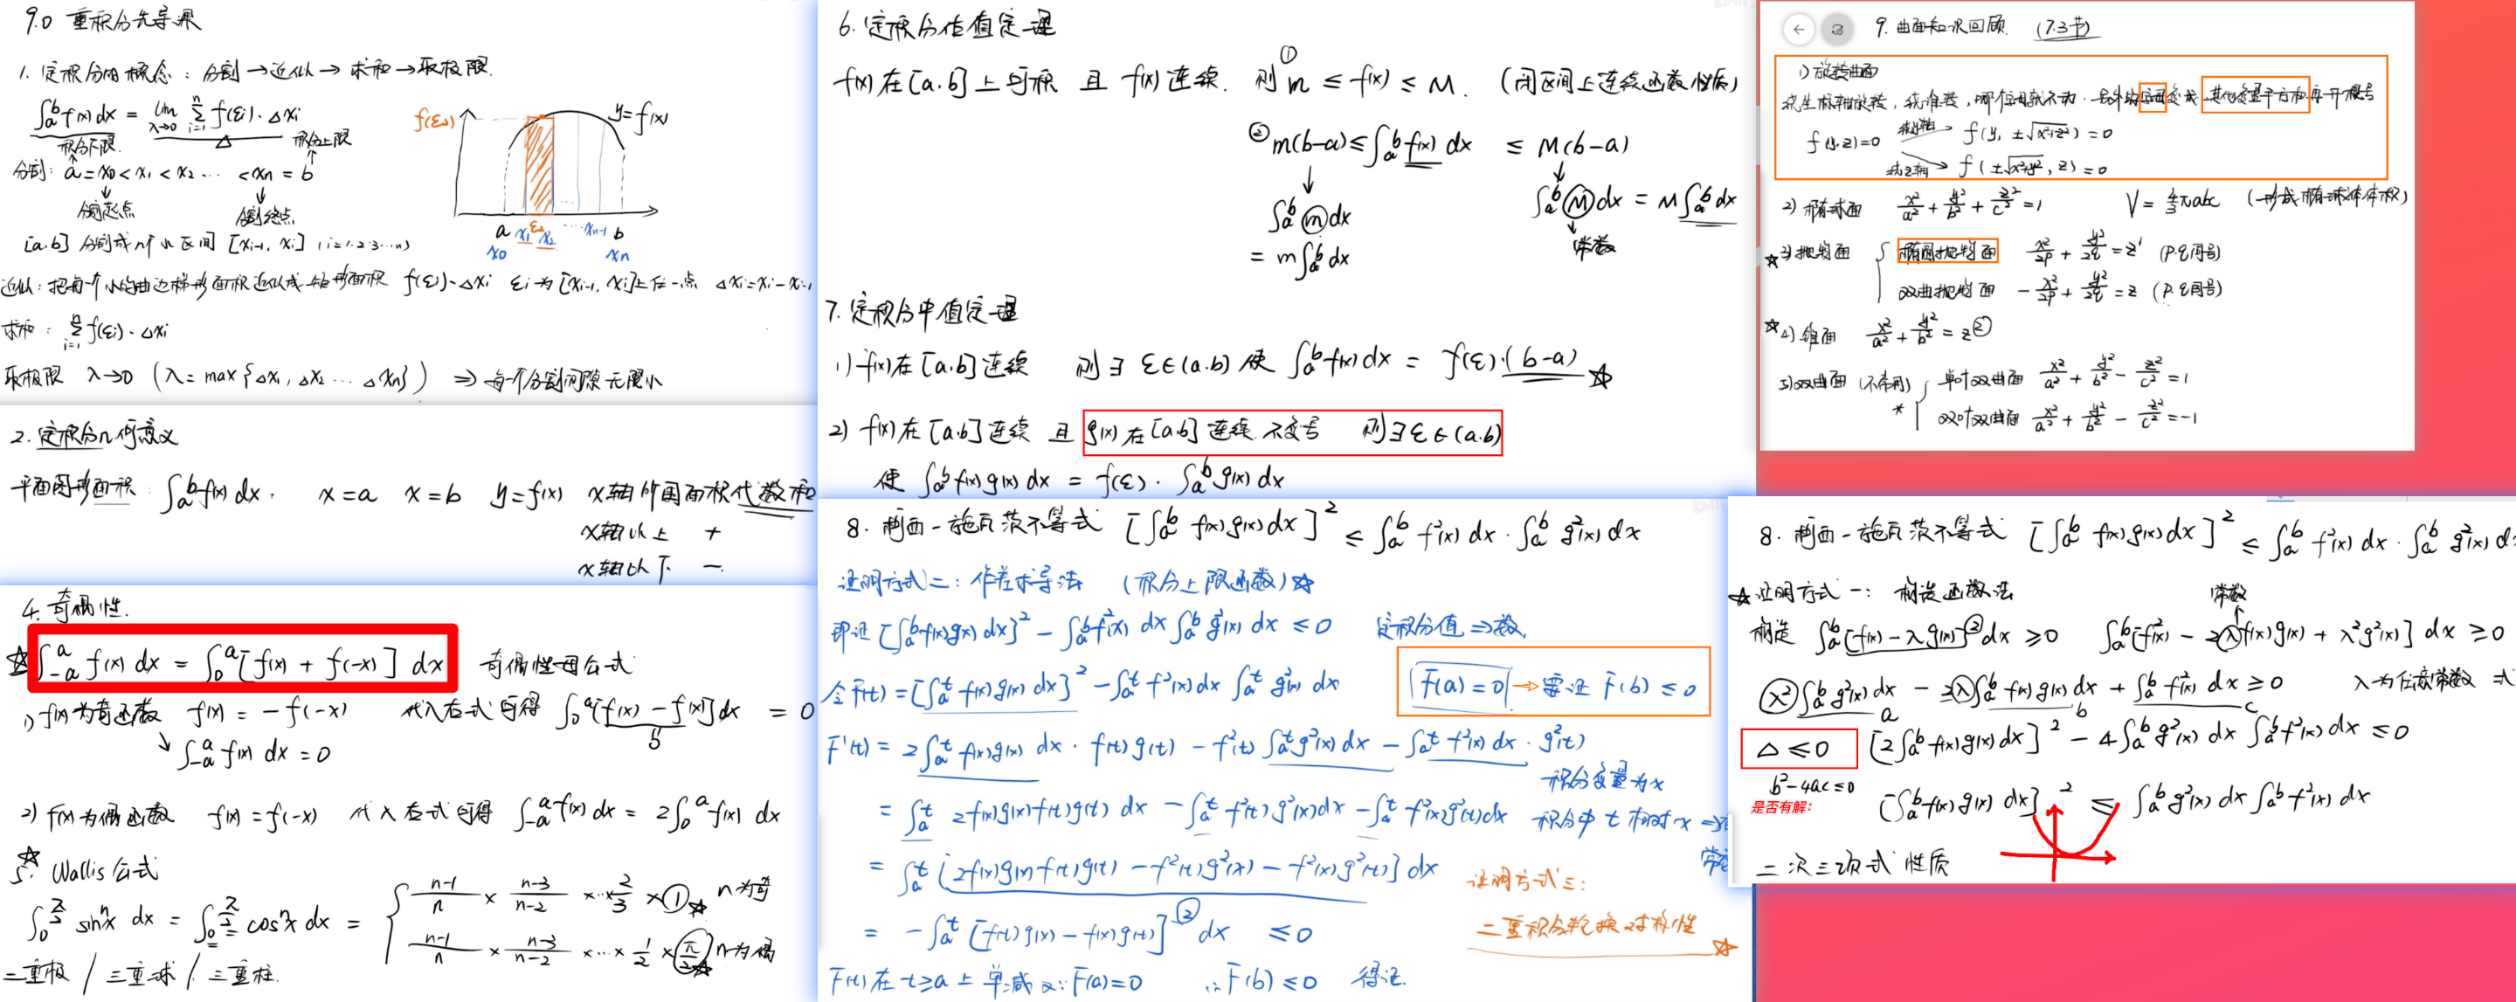 9.0 重积分先导课
1. 定积分的概念：分割→近似→求和→取极限.
∫_a^b f(x)dx = lim_{λ→0} Σ_{i=1}^n f(ε_i)·Δx_i
积分下限 积分上限
f(ε_2) y=f(x)
分割：a=x_0<x_1<x_2… <x_n=b
分割起点 分割终点
a x_1 ε_2 x_2 …x_{n-1} b
x_0 x_n
[a.b] 分割成n个小区间 [x_{i-1}, x_i] (i=1.2.3…n)
近似：把每一个小的曲边梯形面积近似成矩形面积 f(ε_i)·Δx_i ε_i为[x_{i-1}, x_i]上任一点 Δx_i=x_i-x_{i-1}
求和：Σ_{i=1}^n f(ε_i)·Δx_i
取极限 λ→0 (λ=max{Δx_1, Δx_2 … Δx_n}) ⇒ 每个分割间隙无限小
2. 定积分几何意义
平面图形面积：∫_a^b f(x)dx. x=a x=b y=f(x) x轴所围面积代数和
x轴以上 +
x轴以下 -
4. 奇偶性.
☆ ∫_{-a}^a f(x)dx = ∫_0^a [f(x)+f(-x)]dx 奇偶性母公式
1) f(x)为奇函数 f(x)=-f(-x) 代入右式可得 ∫_0^a [f(x)-f(x)]dx = 0
0
↘ ∫_{-a}^a f(x)dx=0
2) f(x)为偶函数 f(x)=f(-x) 代入右式可得 ∫_{-a}^a f(x)dx = 2∫_0^a f(x)dx
☆
5. Wallis公式
∫_0^{π/2} sin^n x dx = ∫_0^{π/2} cos^n x dx = { (n-1)/n × (n-3)/(n-2) × … 2/3 × ① ☆ n为奇
(n-1)/n × (n-3)/(n-2) × … × 1/2 × π/2 ☆ n为偶
二重极 / 三重球 / 三重柱.
6. 定积分估值定理
f(x)在[a.b]上可积 且 f(x)连续. 则 ① m ≤ f(x) ≤ M. (闭区间上连续函数性质)
② m(b-a) ≤ ∫_a^b f(x)dx ≤ M(b-a)
↓ ↓
∫_a^b m dx ∫_a^b M dx = M∫_a^b dx
= m∫_a^b dx 常数
7. 定积分中值定理
1) f(x)在[a.b]连续 则∃ε∈(a.b) 使 ∫_a^b f(x)dx = f(ε)·(b-a) ☆
2) f(x)在[a.b]连续 且 g(x)在[a.b]连续.不变号 则∃ε∈(a.b)
使 ∫_a^b f(x)g(x)dx = f(ε)·∫_a^b g(x)dx
8. 柯西-施瓦茨不等式 [∫_a^b f(x)g(x)dx]² ≤ ∫_a^b f²(x)dx·∫_a^b g²(x)dx
证明方式二：作差求导法 (积分上限函数)☆
即证 [∫_a^b f(x)g(x)dx]² - ∫_a^b f²(x)dx ∫_a^b g²(x)dx ≤ 0 定积分值⇒数.
令F(t) = [∫_a^t f(x)g(x)dx]² - ∫_a^t f²(x)dx ∫_a^t g²(x)dx F(a)=0 → 要证 F(b)≤0
F'(t) = 2∫_a^t f(x)g(x)dx·f(t)g(t) - f²(t)∫_a^t g²(x)dx - ∫_a^t f²(x)dx·g²(t)
积分变量为x
= ∫_a^t 2f(x)g(x)f(t)g(t)dx - ∫_a^t f²(t)g²(x)dx - ∫_a^t f²(x)g²(t)dx 积分中t相对x⇒
= ∫_a^t [2f(x)g(x)f(t)g(t) - f²(t)g²(x) - f²(x)g²(t)]dx
= -∫_a^t [f(t)g(x) - f(x)g(t)]² dx ≤ 0
F(t)在t≥a上单减 又∵F(a)=0 ∴F(b)≤0 得证.
证明方式三：
二重积分轮换对称性 ☆
9. 曲面知识回顾. (7.3节)
1) 旋转曲面
绕坐标轴旋转，绕谁转，哪个就不动.另外的变成,其他变量平方和再开根号
f(y.z)=0 绕y轴→ f(y, ±√(x²+z²))=0
绕z轴→ f(±√(x²+y²), z)=0
2) 椭球面 x²/a² + y²/b² + z²/c² = 1 V=4/3πabc (形成椭球体体积)
☆3) 抛物面 { 椭圆抛物面 x²/2p + y²/2q = z (p.q同号)
双曲抛物面 -x²/2p + y²/2q = z (p.q同号)
☆4) 锥面 x²/a² + y²/b² = z²
5) 双曲面 (不常用) { 单叶双曲面 x²/a² + y²/b² - z²/c² = 1
* 双叶双曲面 x²/a² + y²/b² - z²/c² = -1
8. 柯西-施瓦茨不等式 [∫_a^b f(x)g(x)dx]² ≤ ∫_a^b f²(x)dx·∫_a^b g²(x)d
☆证明方式一：构造函数法 常数
构造 ∫_a^b [f(x)-λg(x)]²dx ≥ 0 ∫_a^b [f²(x) - 2λf(x)g(x) + λ²g²(x)]dx ≥ 0
λ²∫_a^b g²(x)dx - 2λ∫_a^b f(x)g(x)dx + ∫_a^b f²(x)dx ≥ 0 λ为任意常数
a b c
Δ≤0 [2∫_a^b f(x)g(x)dx]² - 4∫_a^b g²(x)dx ∫_a^b f²(x)dx ≤ 0
b²-4ac≤0
是否有解：
[∫_a^b f(x)g(x)dx]² ≤ ∫_a^b g²(x)dx ∫_a^b f²(x)dx
二次三项式性质